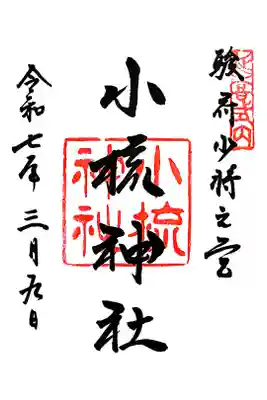 駿府少将之宮
小梳神社
小梳
神社
令和七年三月九日